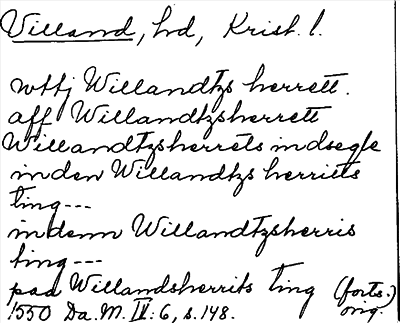 Villand, hd, Krist. l.
wttj Willandtzs herrett.
aff Willandtzsherrett
Willandtzsherrets indsegle
inden Willandtzs herritts
ting---
indenn Willandtzsherris
ting---
paa Willandsherrits ting (forts.)
1550 Da. M. IV: 6, s. 148. orig.